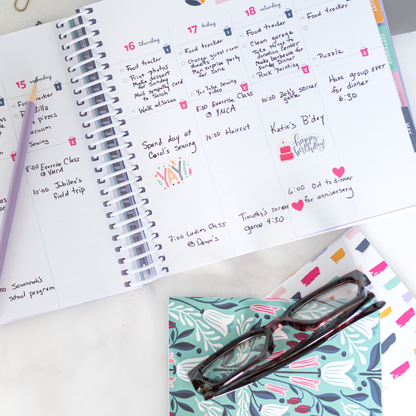 15 wednesday
izza
vacuum
Sewing
9:00 Exercise Class
@ YMCA
10:00 Jubilee's
field trip
Savannah's
school program
16 thursday
Food tracker
Print photos
Make dessert
Monday
Mail sympathy card
to Sarah
Walk w/ Susan
Spend day at
Carol's sewing
YAY!
7:00 Ladies Class
@ Dawn's
17 friday
Food tracker
Change guest room
Plan surprise party
for Jane
YouTube sewing
video
8:00 Exercise Class
@ YMCA
10:30 Haircut
Timothy's soccer
game 4:30
18 saturday
Food tracker
Clean garage
Take items to
donation center
Make barbecue for
Sunday dinner
Rock painting
10:00 Joel's soccer
game
Katie's B'day
happy
birthday!
6:00 Out to dinner
for anniversary
Food tracker
Puzzle
Have group over
for dinner
6:30